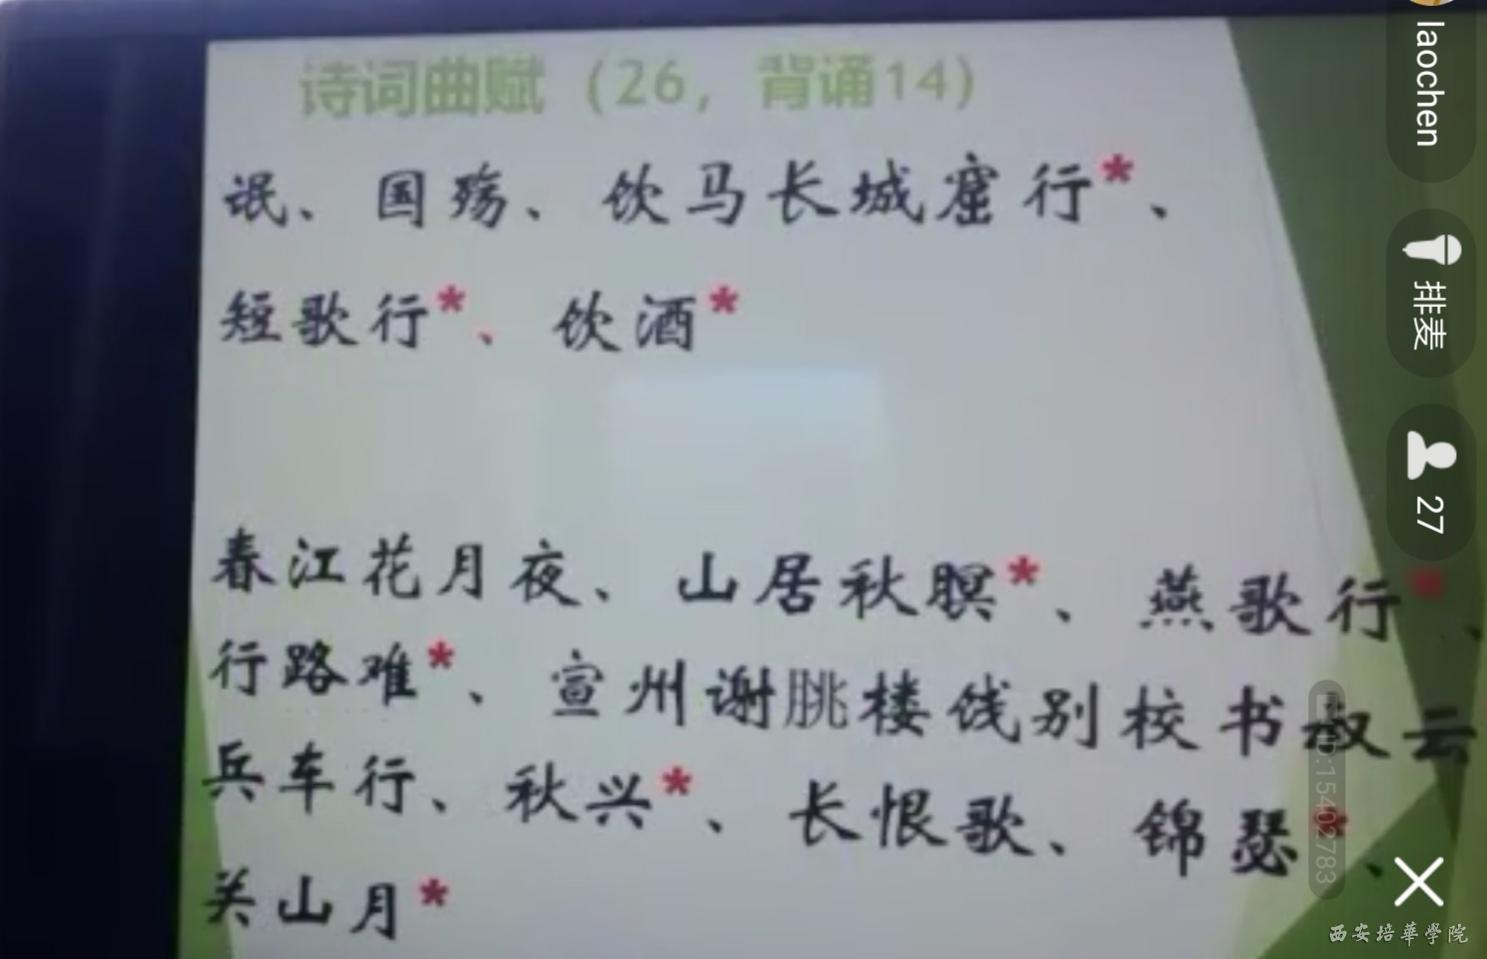 诗词曲赋（26，背诵14）
氓、国殇、饮马长城窟行*、
短歌行*、饮酒*
春江花月夜、山居秋暝*、燕歌行*、
行路难*、宣州谢朓楼饯别校书叔云
兵车行、秋兴*、长恨歌、锦瑟*、
关山月*
laochen
排麦
27
ID:15402783
西安培華學院